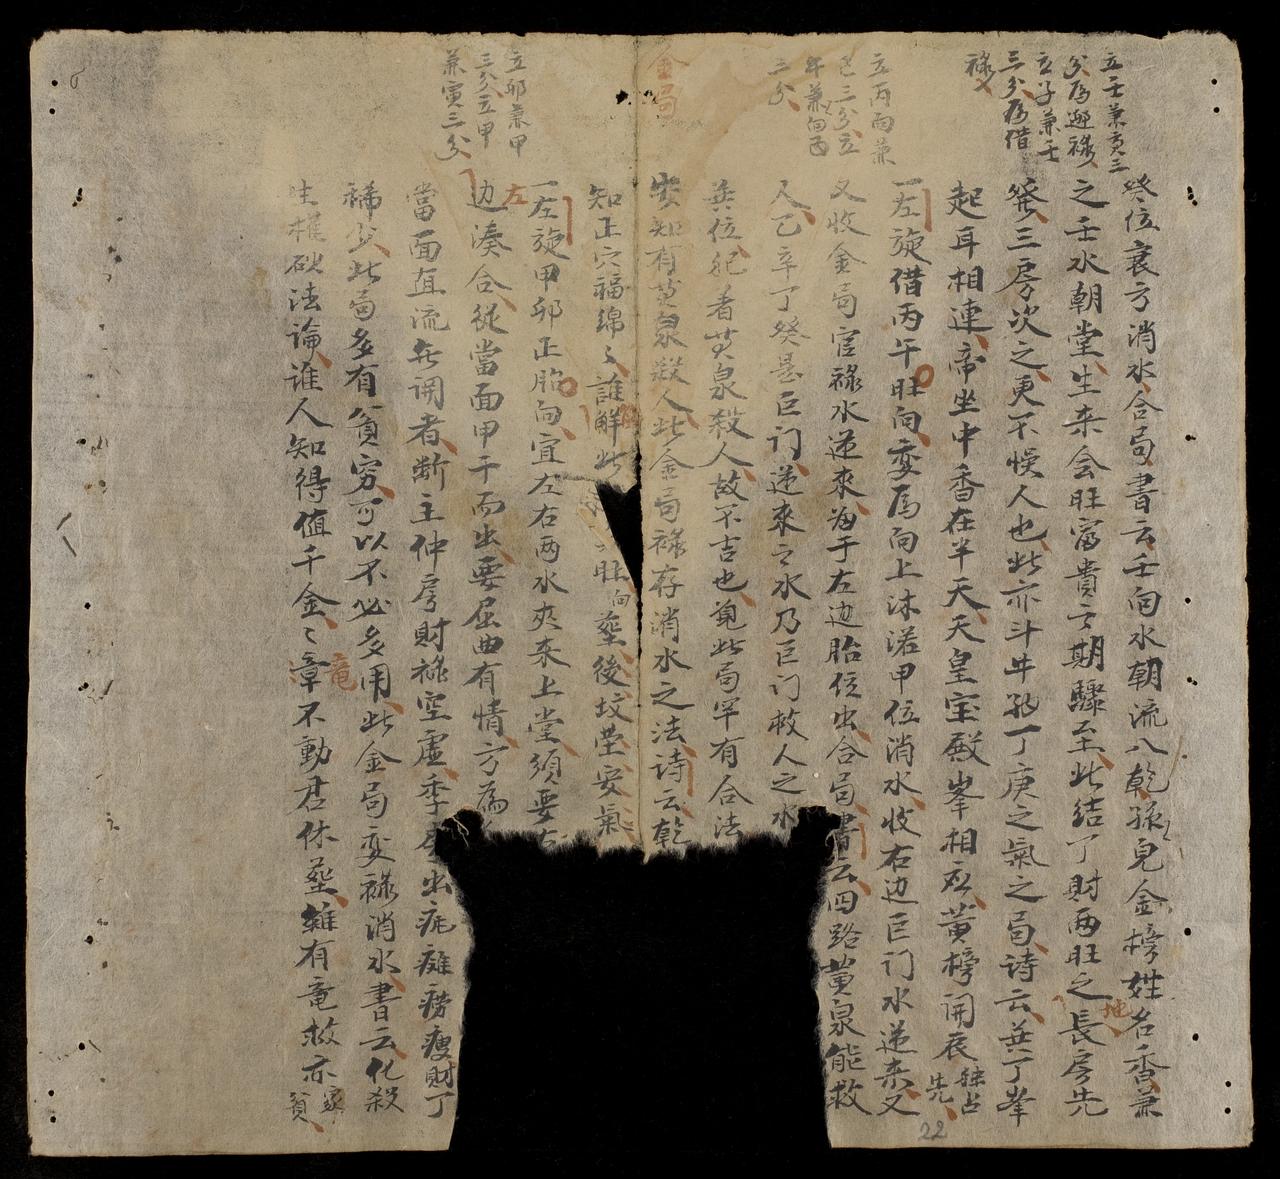 立壬兼亥三
分為避祿
立子兼壬
三分為借
祿
癸位衰方消水合局書云壬向水朝流入乾孫兒金榜姓名香兼
之壬水朝堂生来会旺富貴之期驟至此结丁財两旺之地長房先
發三房次之更不悮人也此亦斗牛弘丁庚之氣之局诗云兵丁峯
起耳相連帝坐中香在半天天皇宝殿峯相应黄榜開辰独占
先
一左旋借丙午旺向变為向上沐浴甲位消水收右边巨门水逆来又
立丙向兼
巳三分立
午兼向丙
三分
又收金局官祿水逆來為于左边胎位出合局書云四路黄泉能救
人乙辛丁癸是巨门逆來之水乃巨门救人之水
兵位犯者黄泉殺人故不吉也竟此局罕有合法
金局
安知有黄泉殺人此金局祿存消水之法诗云乾
知正穴福綿〻誰解此
旺向塟後坟塋安氣
一左旋甲卯正胎向宜左右两水夾来上堂須要右
立卯兼甲
三分立甲
兼寅三分
左
边湊合從當面甲干而出要屈曲有情方為
當面直流無開者断主仲房財祿空虚季房出疕癱痨瘦財丁
稀少此局多有貧穷可以不必多用此金局变祿消水書云化殺
生權砂法論谁人知得值千金〻章不動君休塟雖有竜救亦家
貧
竜
22